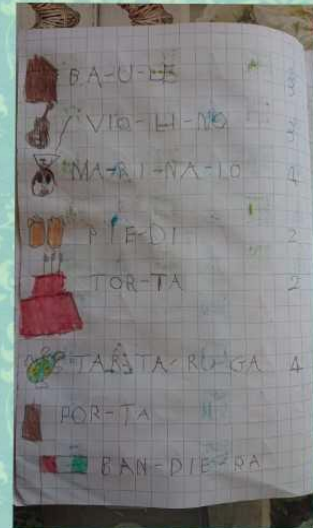 BA-U-LE 3
VIO-LI-NO 3
MA-RI-NA-IO 4
PIE-DI 2
TOR-TA 2
TAR-TA-RU-GA 4
POR-TA
BAN-DIE-RA